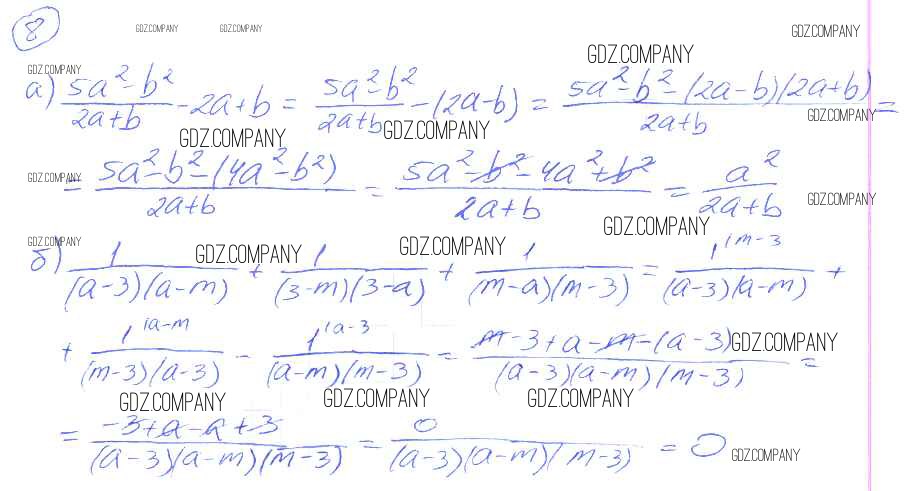 8 GDZ.COMPANY GDZ.COMPANY GDZ.COMPANY
GDZ.COMPANY GDZ.COMPANY
а) (5a²-b²)/(2a+b) - 2a+b = (5a²-b²)/(2a+b) - (2a-b) = (5a²-b²-(2a-b)(2a+b))/(2a+b) =
GDZ.COMPANY GDZ.COMPANY GDZ.COMPANY
= (5a²-b²-(4a²-b²))/(2a+b) = (5a²-b²-4a²+b²)/(2a+b) = a²/(2a+b)
GDZ.COMPANY GDZ.COMPANY
GDZ.COMPANY GDZ.COMPANY GDZ.COMPANY GDZ.COMPANY
б) 1/((a-3)(a-m)) + 1/((3-m)(3-a)) + 1/((m-a)(m-3)) = 1^(m-3)/((a-3)(a-m)) +
+ 1^(a-m)/((m-3)(a-3)) - 1^(a-3)/((a-m)(m-3)) = (m-3+a-m-(a-3))/((a-3)(a-m)(m-3)) =
GDZ.COMPANY
GDZ.COMPANY GDZ.COMPANY GDZ.COMPANY
= (-3+a-a+3)/((a-3)(a-m)(m-3)) = 0/((a-3)(a-m)(m-3)) = 0
GDZ.COMPANY